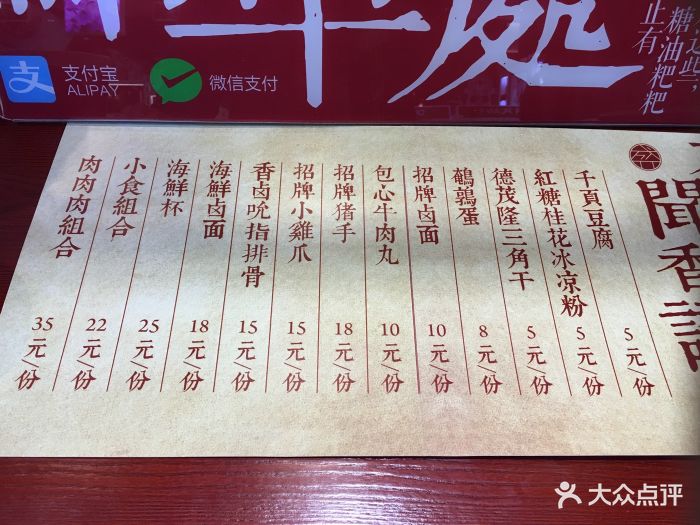 支付宝
ALIPAY
微信支付
糖油粑粑
止有
聞香
千頁豆腐 5元/份
紅糖桂花冰凉粉 5元/份
德茂隆三角干 5元/份
鵪鶉蛋 8元/份
招牌卤面 10元/份
包心牛肉丸 10元/份
招牌猪手 18元/份
招牌小雞爪 15元/份
香卤吮指排骨 15元/份
海鮮卤面 18元/份
海鮮杯 25元/份
小食組合 22元/份
肉肉肉組合 35元/份
大众点评